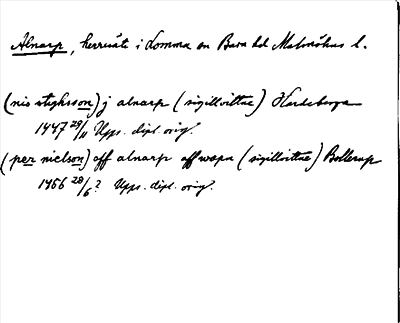 Alnarp, herresäte i Lomma sn Bara hd Malmöhus l.
(nis styghsson) j alnarp (sigillvittne) Hardeberga
1447 29/11 Upps. dipl. orig.
(per nielson) aff alnarp aff wapn (sigillvittne) Bollerup
1456 28/6? Upps. dipl. orig.